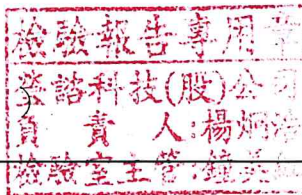 檢驗報告專用章
諮科技(股)公司
負責人:楊
檢驗室主管: